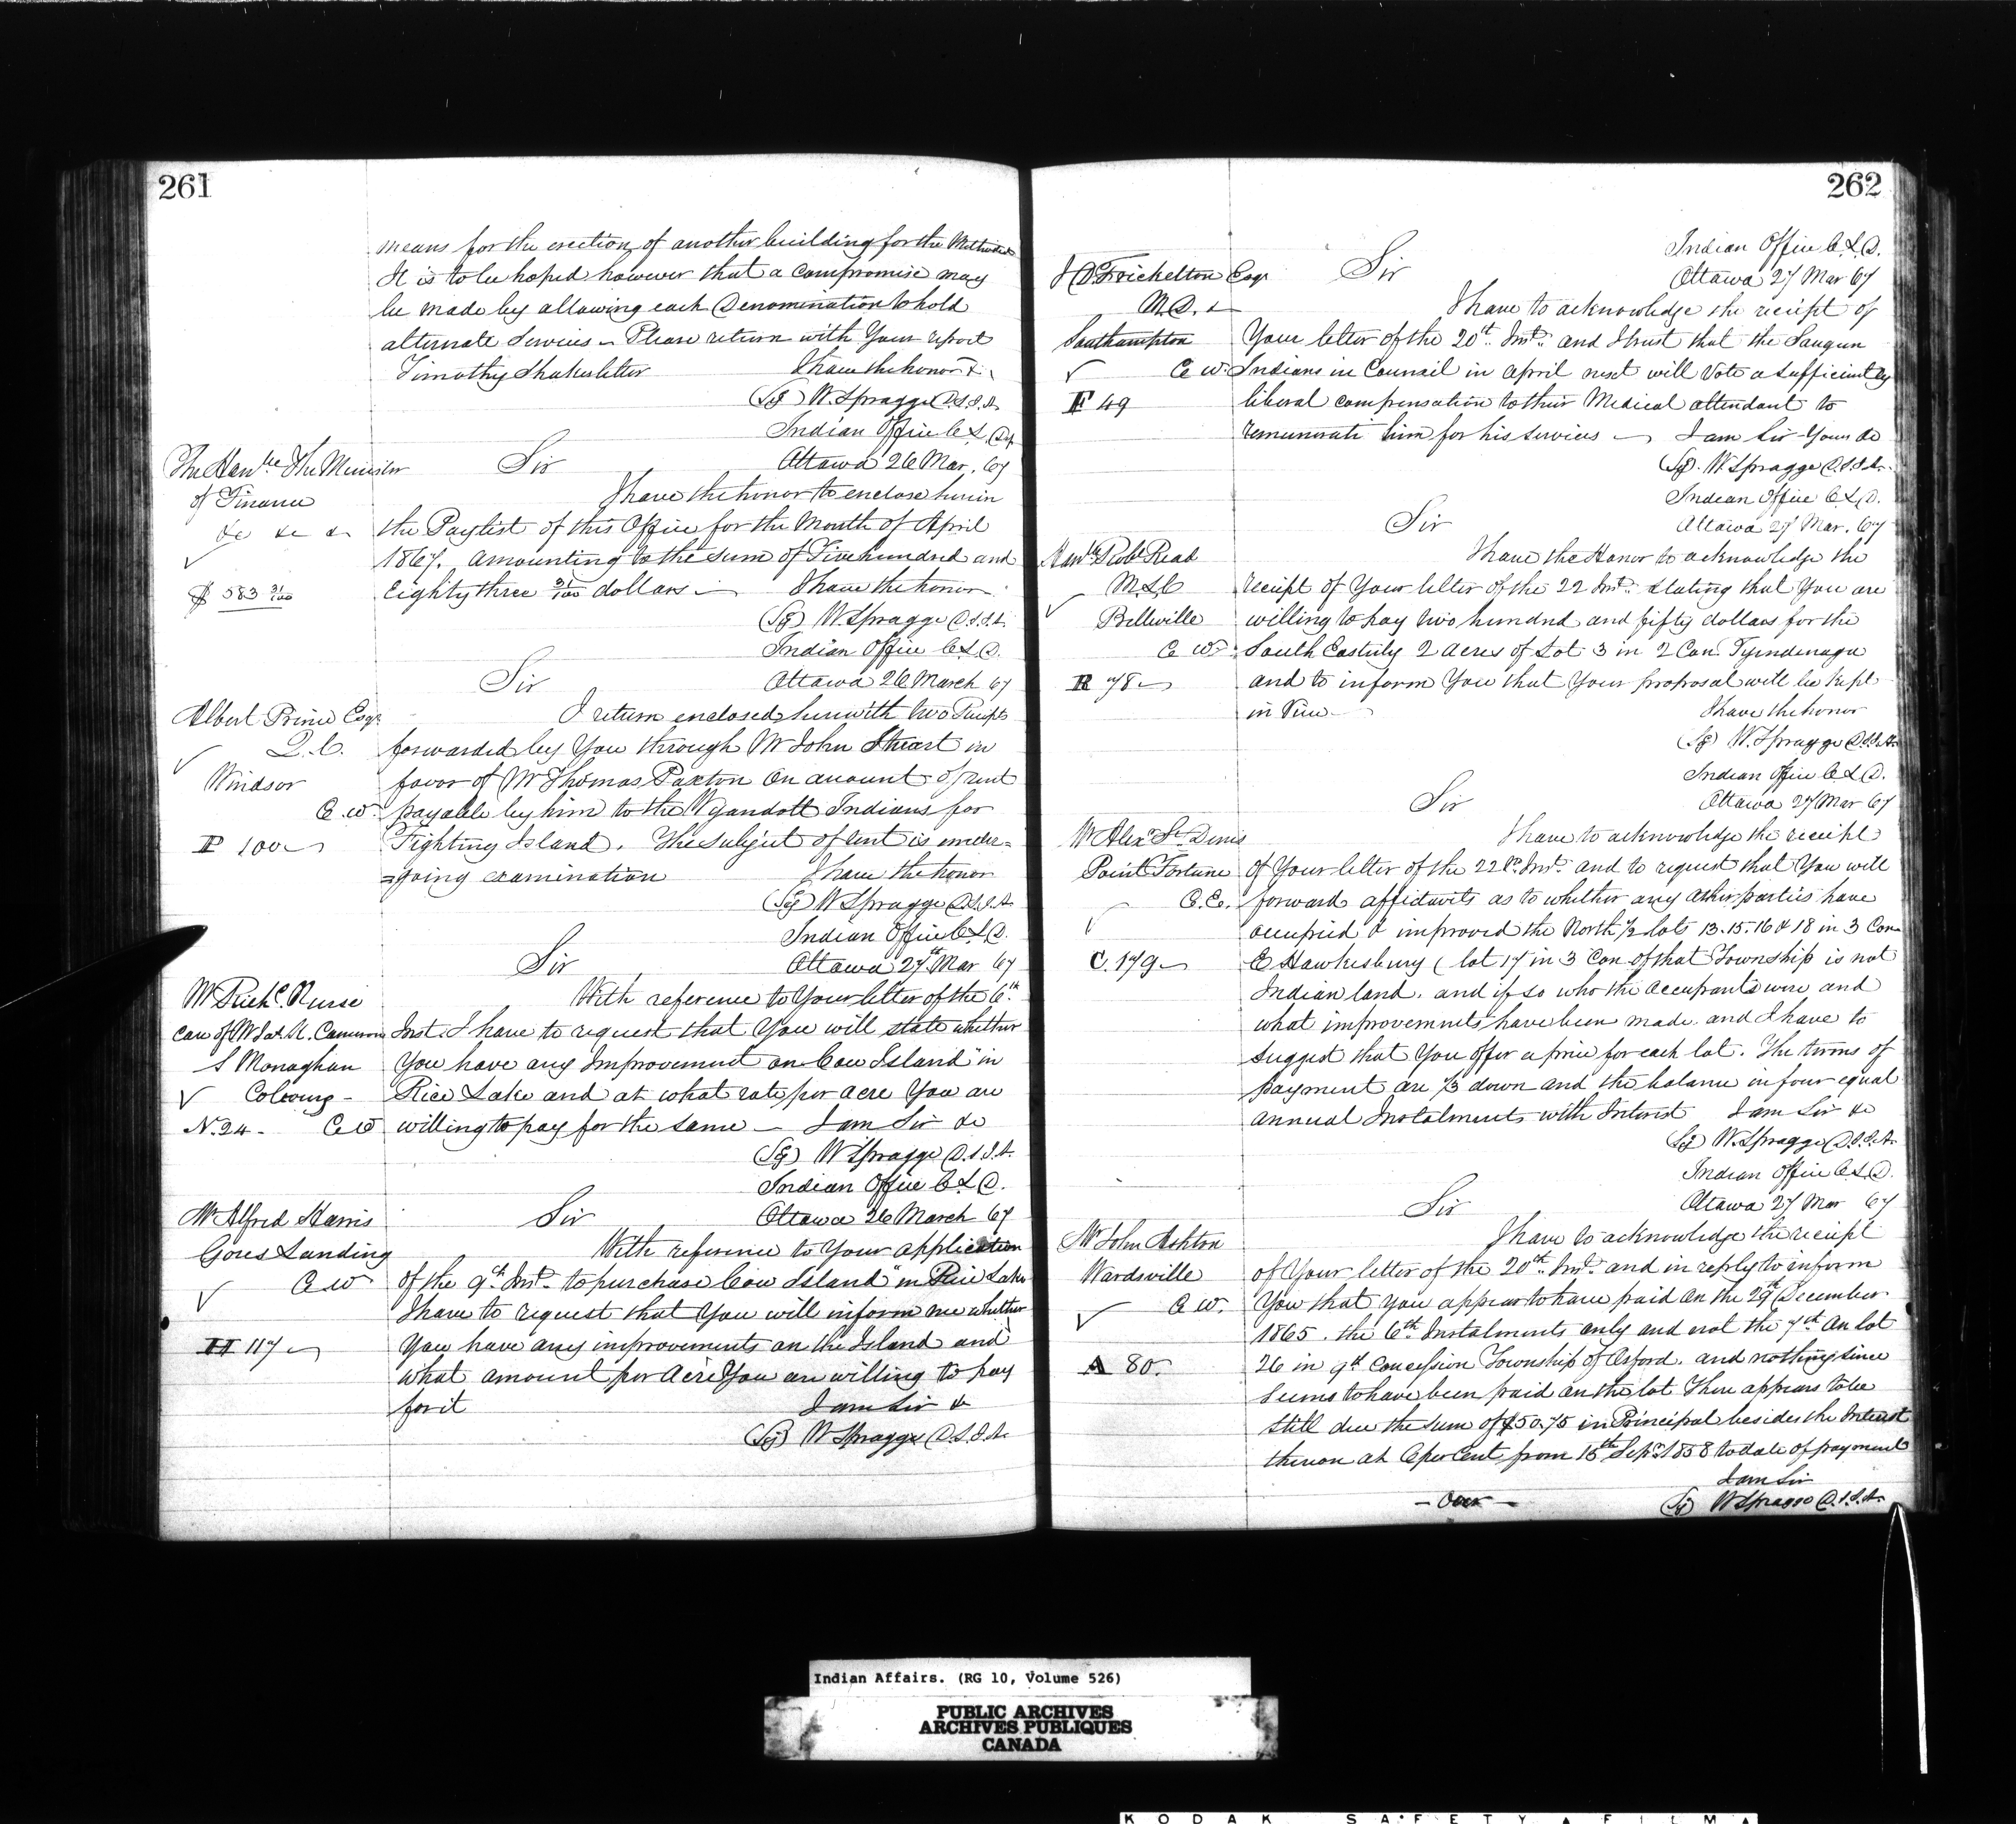 261
means for the erection of another building for the Methodists
It is to be hoped however that a compromise may
be made by allowing each Denomination to hold
alternate Services – Please return with Your report
Timothy Shakes letter I have the honor &c
(Sg) W. Spragge D.S.I.A.
Indian Office C.L. Dep
The Honble The Minister Sir Ottawa 26 Mar. 67
of Finance I have the honor to enclose herein
&c &c &c the Paylist of this Office for the Month of April
1867. amounting to the sum of Five hundred and
$ 583 31/100 Eighty three 31/100 dollars – I have the honor
(Sg) W. Spragge D.S.I.A.
Indian Office C.L.D.
Sir Ottawa 26 March 67
Albert Prince Esqr I return enclosed herewith two Receipts
Q.C. forwarded by You through Mr John Stuart in
Windsor favor of Mr Thomas Paxton On amount of rent
C.W. payable by him to the Wyandott Indians for
P 100 Fighting Island. The subject of rent is under=
=going examination I have the honor
(Sg) W Spragge D.S.I.A.
Indian Office C.L.D.
Sir Ottawa 27th Mar 67
Mr Richd. Nurse With reference to Your letter of the 6th
Care of Mr Jas. H. Cameron Inst. I have to request that You will state whether
S Monaghan You have any Improvement on Cow Island" in
Cobourg – Rice Lake and at what rate per acre You are
N. 24 – C W willing to pay for the same – I am Sir &c
(Sg) W Spragge D.S.I.A.
Indian Office C.L.D.
Mr Alfred Harris Sir Ottawa 26 March 67
Gores Landing With reference to Your application
C W of the 9th Inst. to purchase Cow Island" in Rice Lake
I have to request that You will inform me whether
H 117 You have any improvements on the Island and
what amount per Acre You are willing to pay
for it I am Sir &c
(Sg) W Spragge D.S.I.A.
262
Indian Office C.L.D.
Sir Ottawa 27 Mar 67
Esqr I have to acknowledge the receipt of
M.D. &c
Southampton Your letter of the 20th Inst. and trust that the Saugeen
C W. Indians in Council in April next will Vote a sufficiently
F 49 liberal compensation to their Medical attendant to
remunerate him for his services – I am Sir Yours &c
(Sg). W. Spragge D.S.I.A.
Indian Office C.L.D.
Sir Ottawa 27 Mar. 67
Honble Robt Read I have the Honor to acknowledge the
M.L.C receipt of Your letter of the 22 Inst. stating that You are
Belleville willing to pay two hundred and fifty dollars for the
C W. South Easterly 2 acres of Lot 3 in 2 Con. Tyendenaga
R 78 and to inform You that Your proposal will be kept
in View – I have the honor
(Sg) W. Spragge D.S.I.A.
Indian Office C.L.D.
Sir Ottawa 27 Mar 67
Mr Alexr St Denis I have to acknowledge the receipt
Point Fortune of Your letter of the 22d. Inst. and to request that You will
C.E. forward affidavits as to whether any other parties have
occupied & improved the North 1/2 lots 13. 15. 16 & 18 in 3 Con
C. 179 E Hawkesbury (lot 17 in 3 Con of that Township is not
Indian land. and if so who the occupants were and
what improvements have been made. and I have to
suggest that You offer a price for each lot. The terms of
payment are 1/3 down and the balance in four equal
annual Instalments with Interest I am Sir &c
(Sg) W. Spragge D.S.I.A.
Indian Office C.L.D.
Sir Ottawa 27 Mar 67
Mr John Ashton I have to acknowledge the receipt
Wardsville of Your letter of the 20th Inst. and in reply to inform
C W. You that You appear to have paid on the 29th December
1865. the 6th Instalments only and not the 7th on lot
A 80. 26 in 9th Concession Township of Orford. and nothing since
seems to have been paid on the lot There appears to be
still due the sum of $50.75 in Principal besides the Interest
thereon at 6 per Cent from 15th Sepr 1858 to date of payment
I am Sir
– Over – (Sg) W Spragge D.S.I.A.
Indian Affairs. (RG 10, Volume 526)
PUBLIC ARCHIVES
ARCHIVES PUBLIQUES
CANADA
KODAK SAFETY FILM